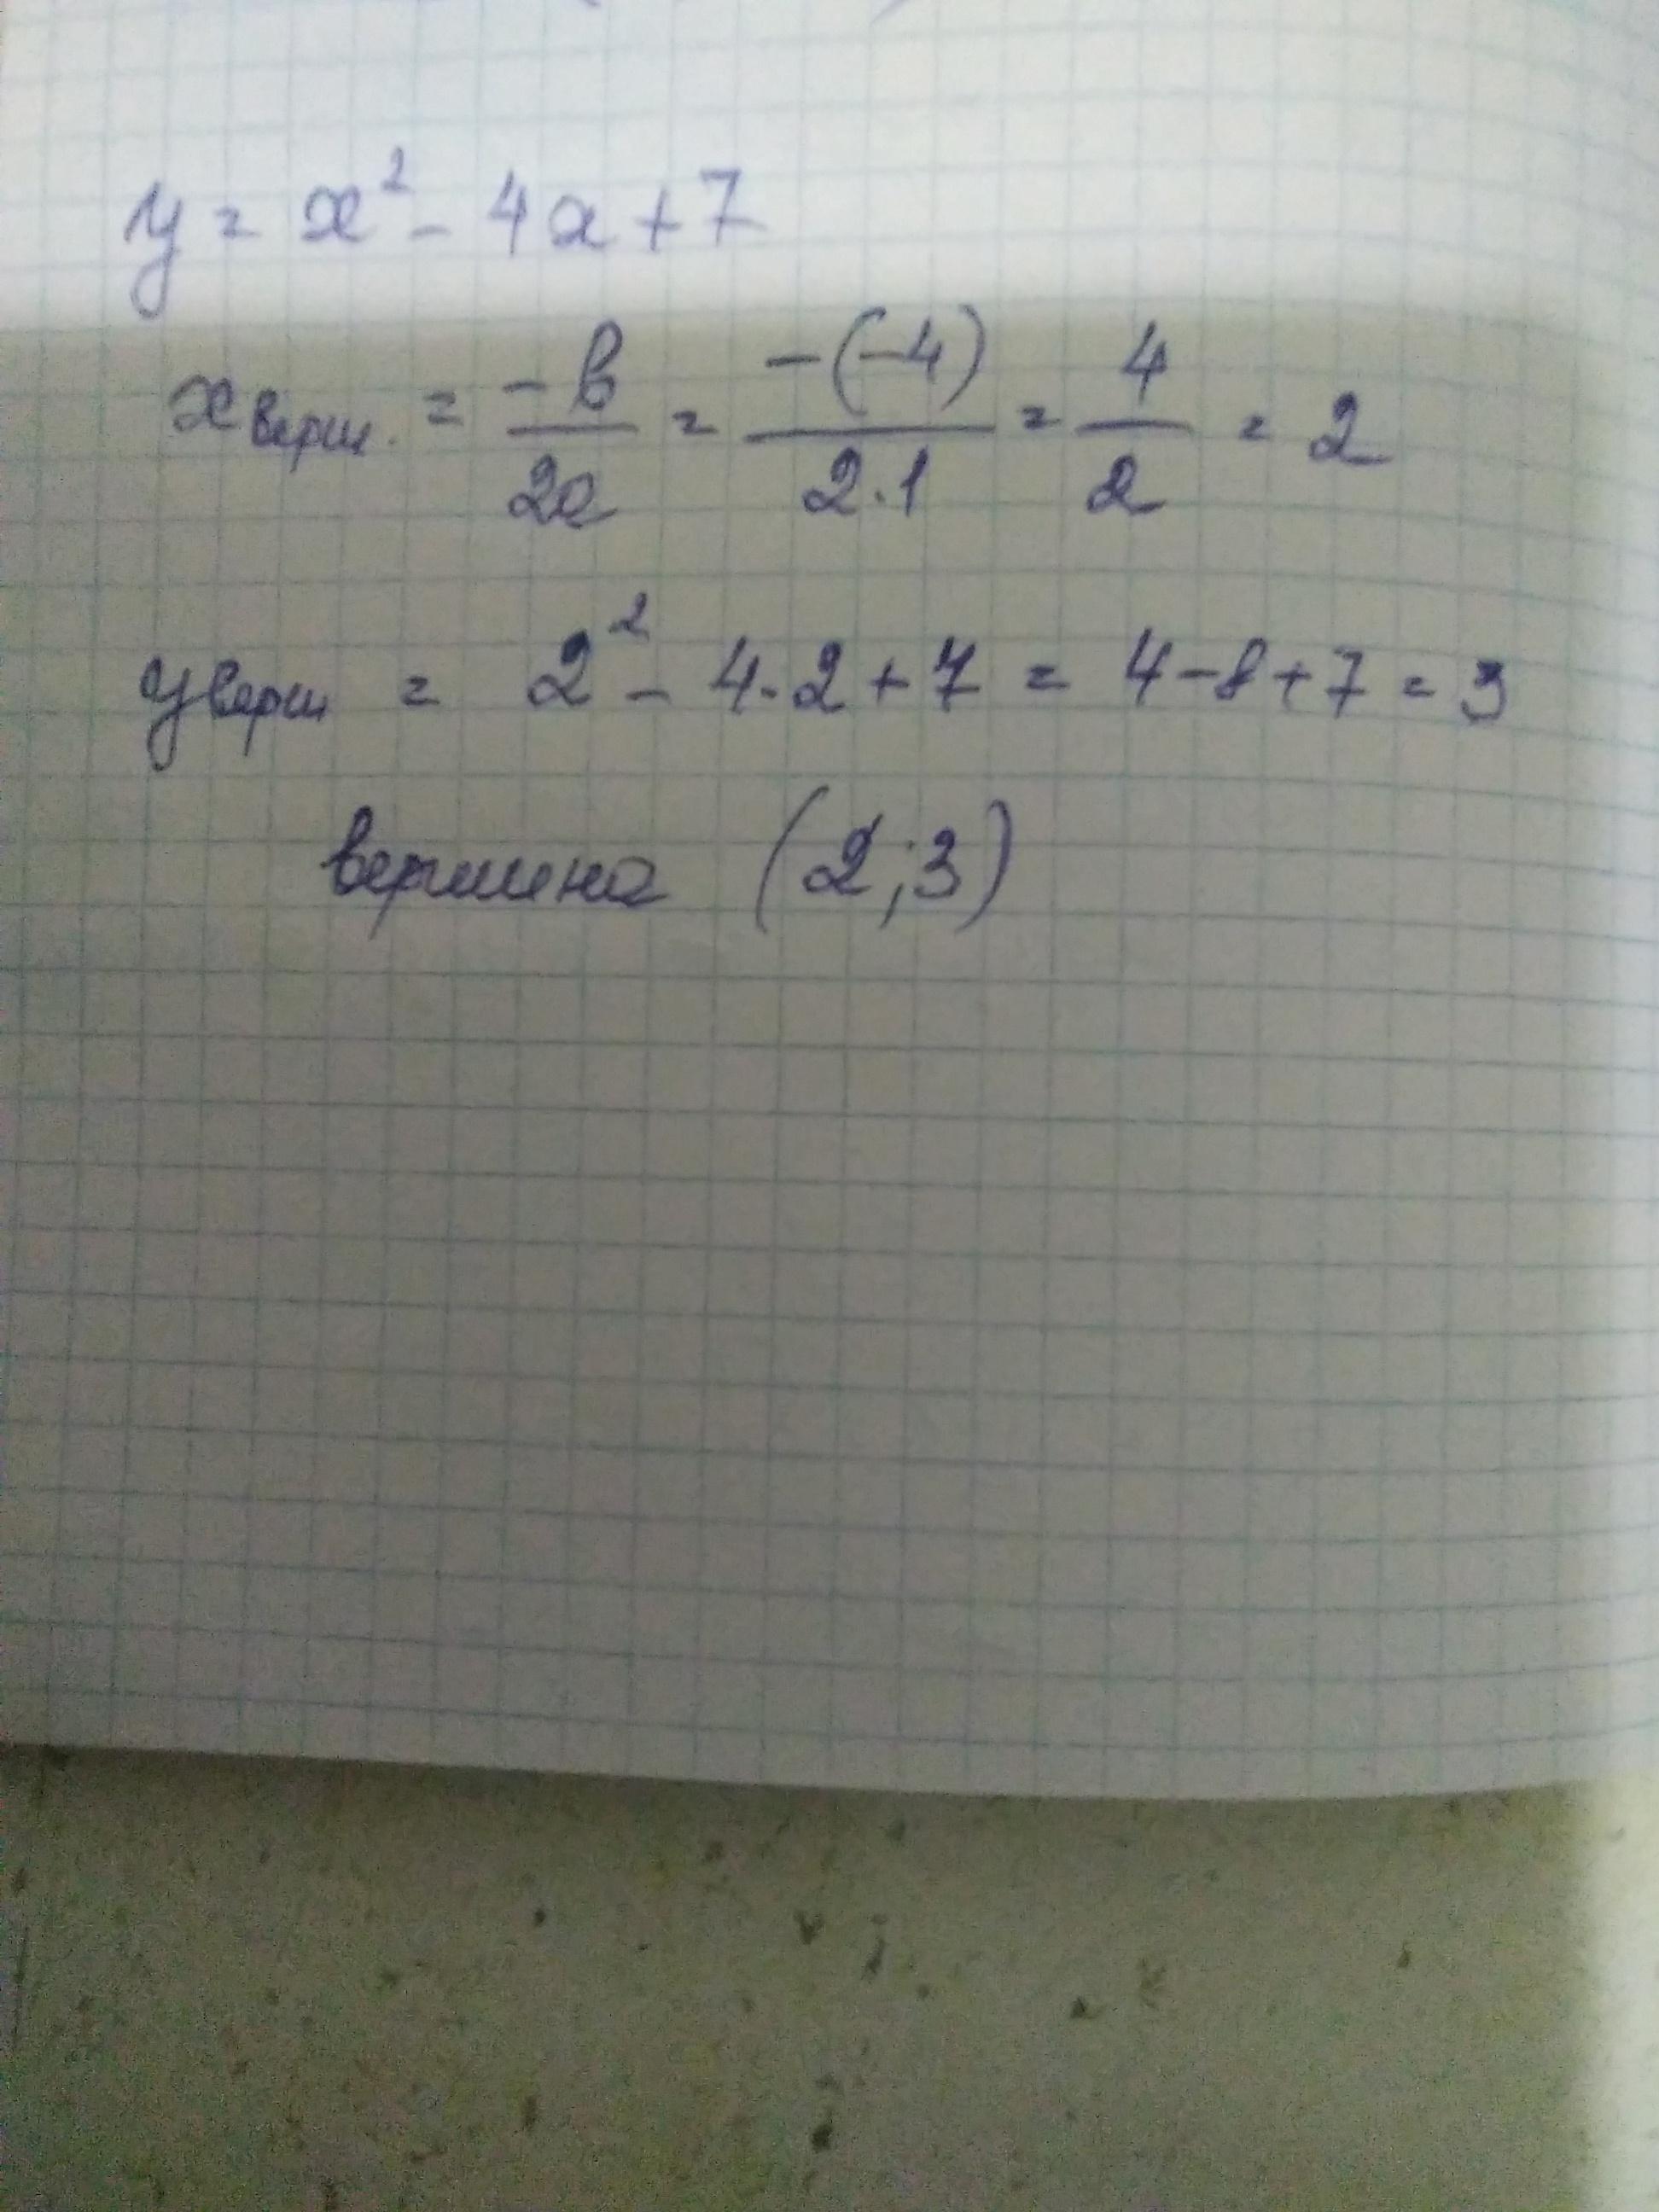 y = x² - 4x + 7
x верш. = -b/2a = -(-4)/2·1 = 4/2 = 2
y верш = 2² - 4·2 + 7 = 4 - 8 + 7 = 3
вершина (2;3)